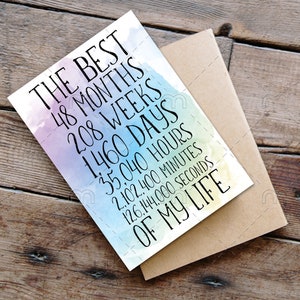 THE BEST
48 MONTHS
208 WEEKS
1,460 DAYS
35,040 HOURS
2,102,400 MINUTES
126,144,000 SECONDS
OF MY LIFE